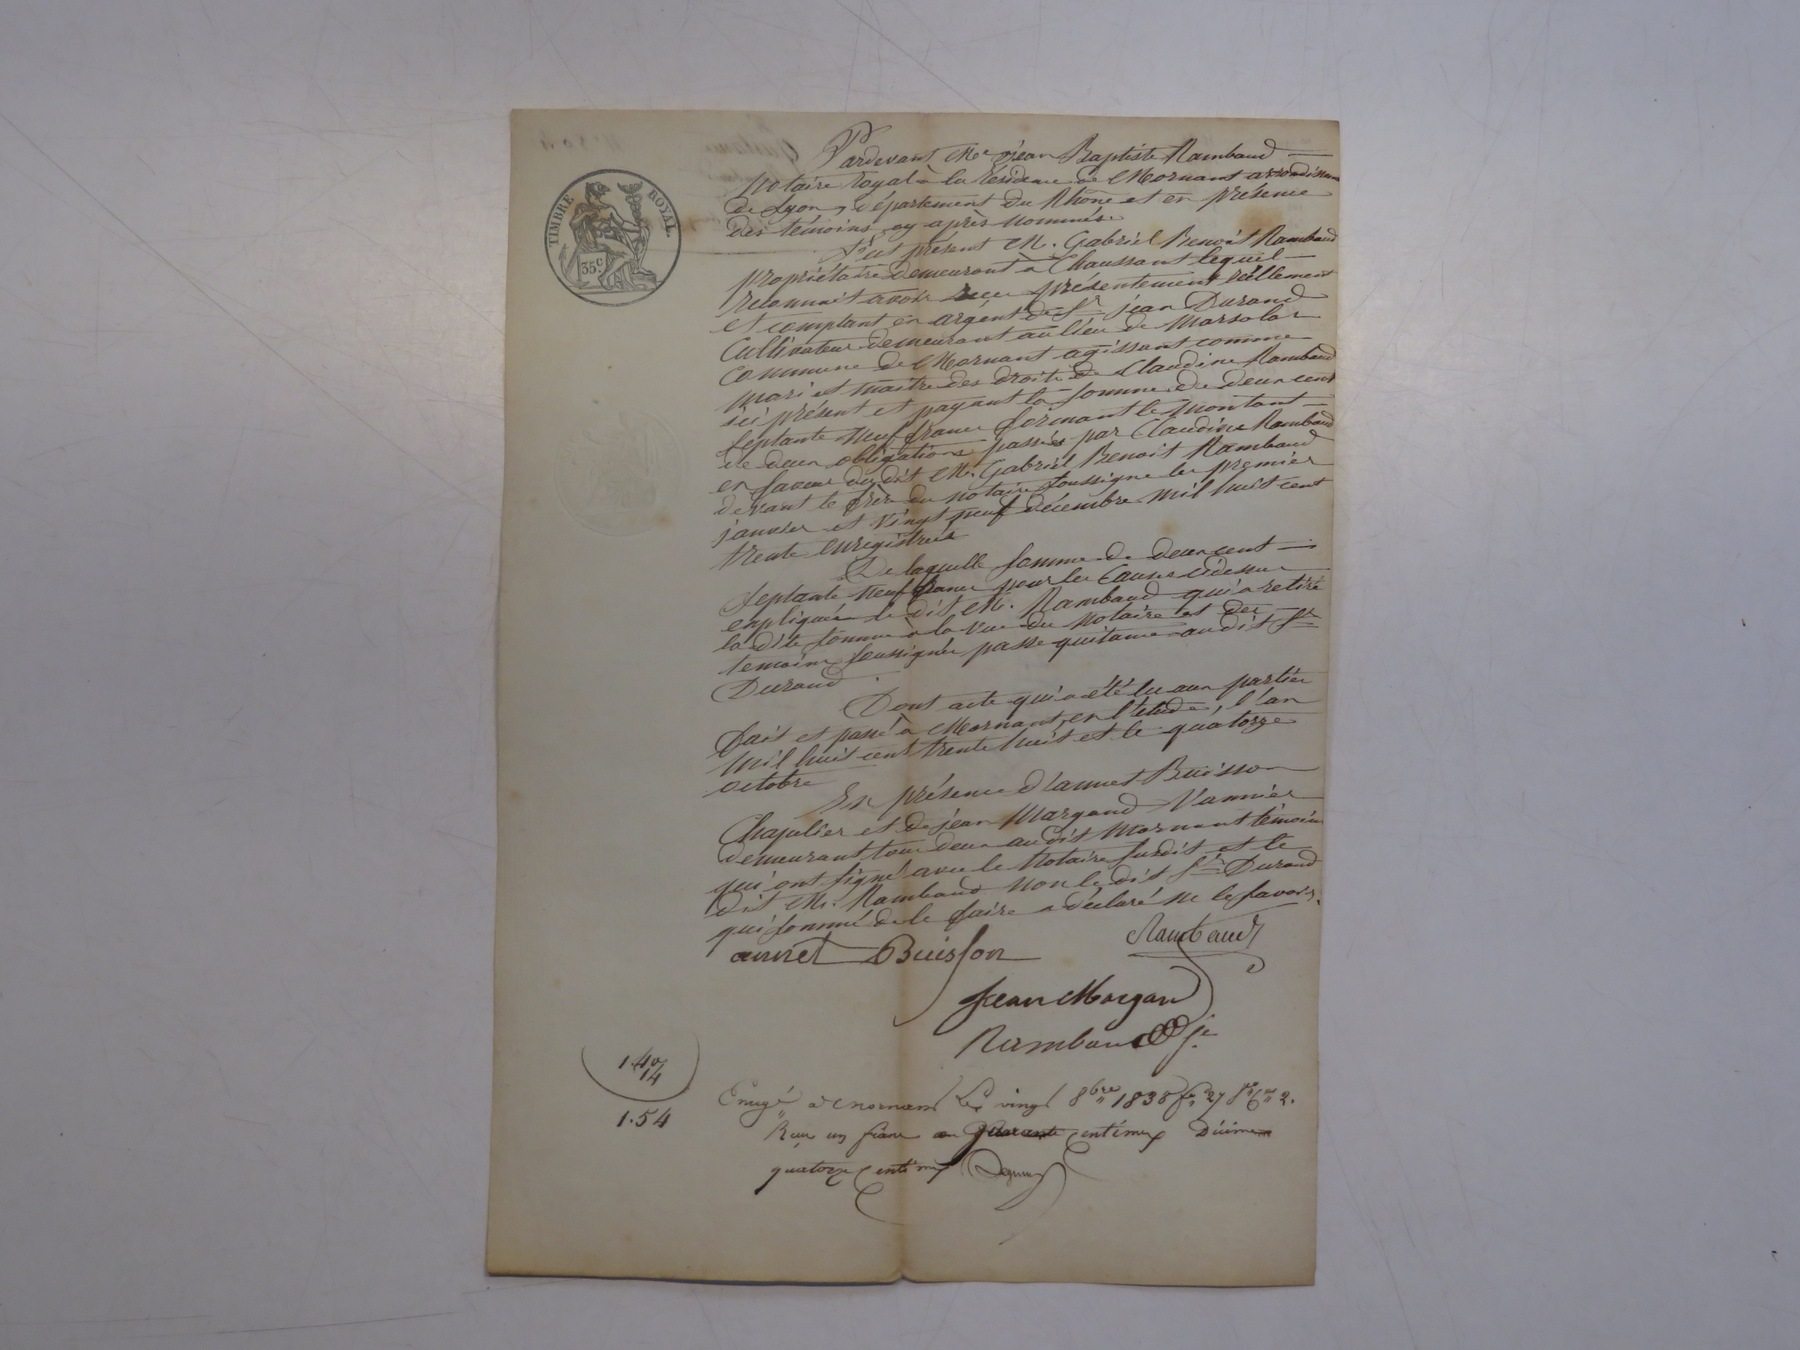 TIMBRE ROYAL.
35c
Pardevant Me jean Baptiste Rambaud
Notaire royal à la résidence de Mornant arrondissem
de Lyon, département du Rhône et en présence
des témoins cy après nommés.
fut présent M. Gabriel Benoît Rambaud
propriétaire demeurant à Chaussant lequel
reconnait avoir reçu présentement réellement
et comptant en argent de Sr jean Durand
Cultivateur demeurant au lieu de Marsolar
commune de Mornant agissant comme
mari et maitre des droits de Claudine Rambaud
ici présent et payant la somme de deux cent
septante neuf francs formant le montant
de deux obligations passées par Claudine Rambaud
en faveur du dit M. Gabriel Benoit Rambaud
devant le frère du notaire soussigné les premier
janvier et vingt neuf décembre mil huit cent
trente enregistrés
De laquelle somme de deux cent
septante neuf francs pour les causes cidessus
expliquées le dit M. Rambaud qui a retiré
la dite somme à la vue du Notaire et des
temoins soussignés passe quitance audit Sr
Durand.
Dont acte qui a été lu aux parties
fait et passé à Mornant, en l'étude, l'an
mil huit cent trente huit et le quatorze
octobre
En présence d'annet Buisson
Chapelier et de jean Margand Vannier
demeurant tous deux audit Mornant témoins
qui ont signé avec le Notaire susdit et le
dit M. Rambaud non le dit Sr Durand
qui sommé de le faire a déclaré ne le savoir.
annet Buisson
Rambaud
Jean Morgan
Rambaud
1.40
14
1.54
Enregé à Mornant Le vingt 8bre 1838 fo 27 Ro Ce 2.
Reçu un franc quarante centimes Décime
quatorze centimes